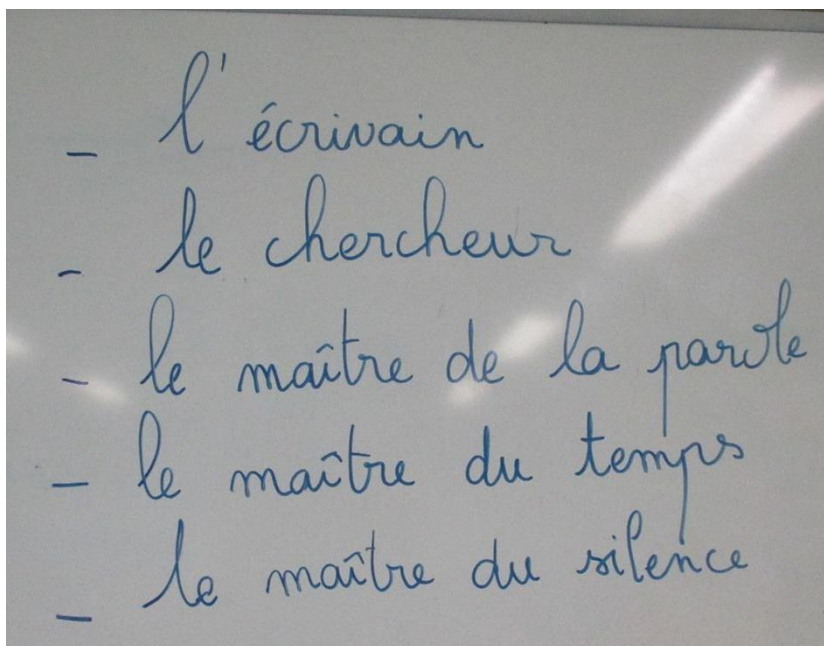 - l'écrivain
- le chercheur
- le maître de la parole
- le maître du temps
- le maître du silence